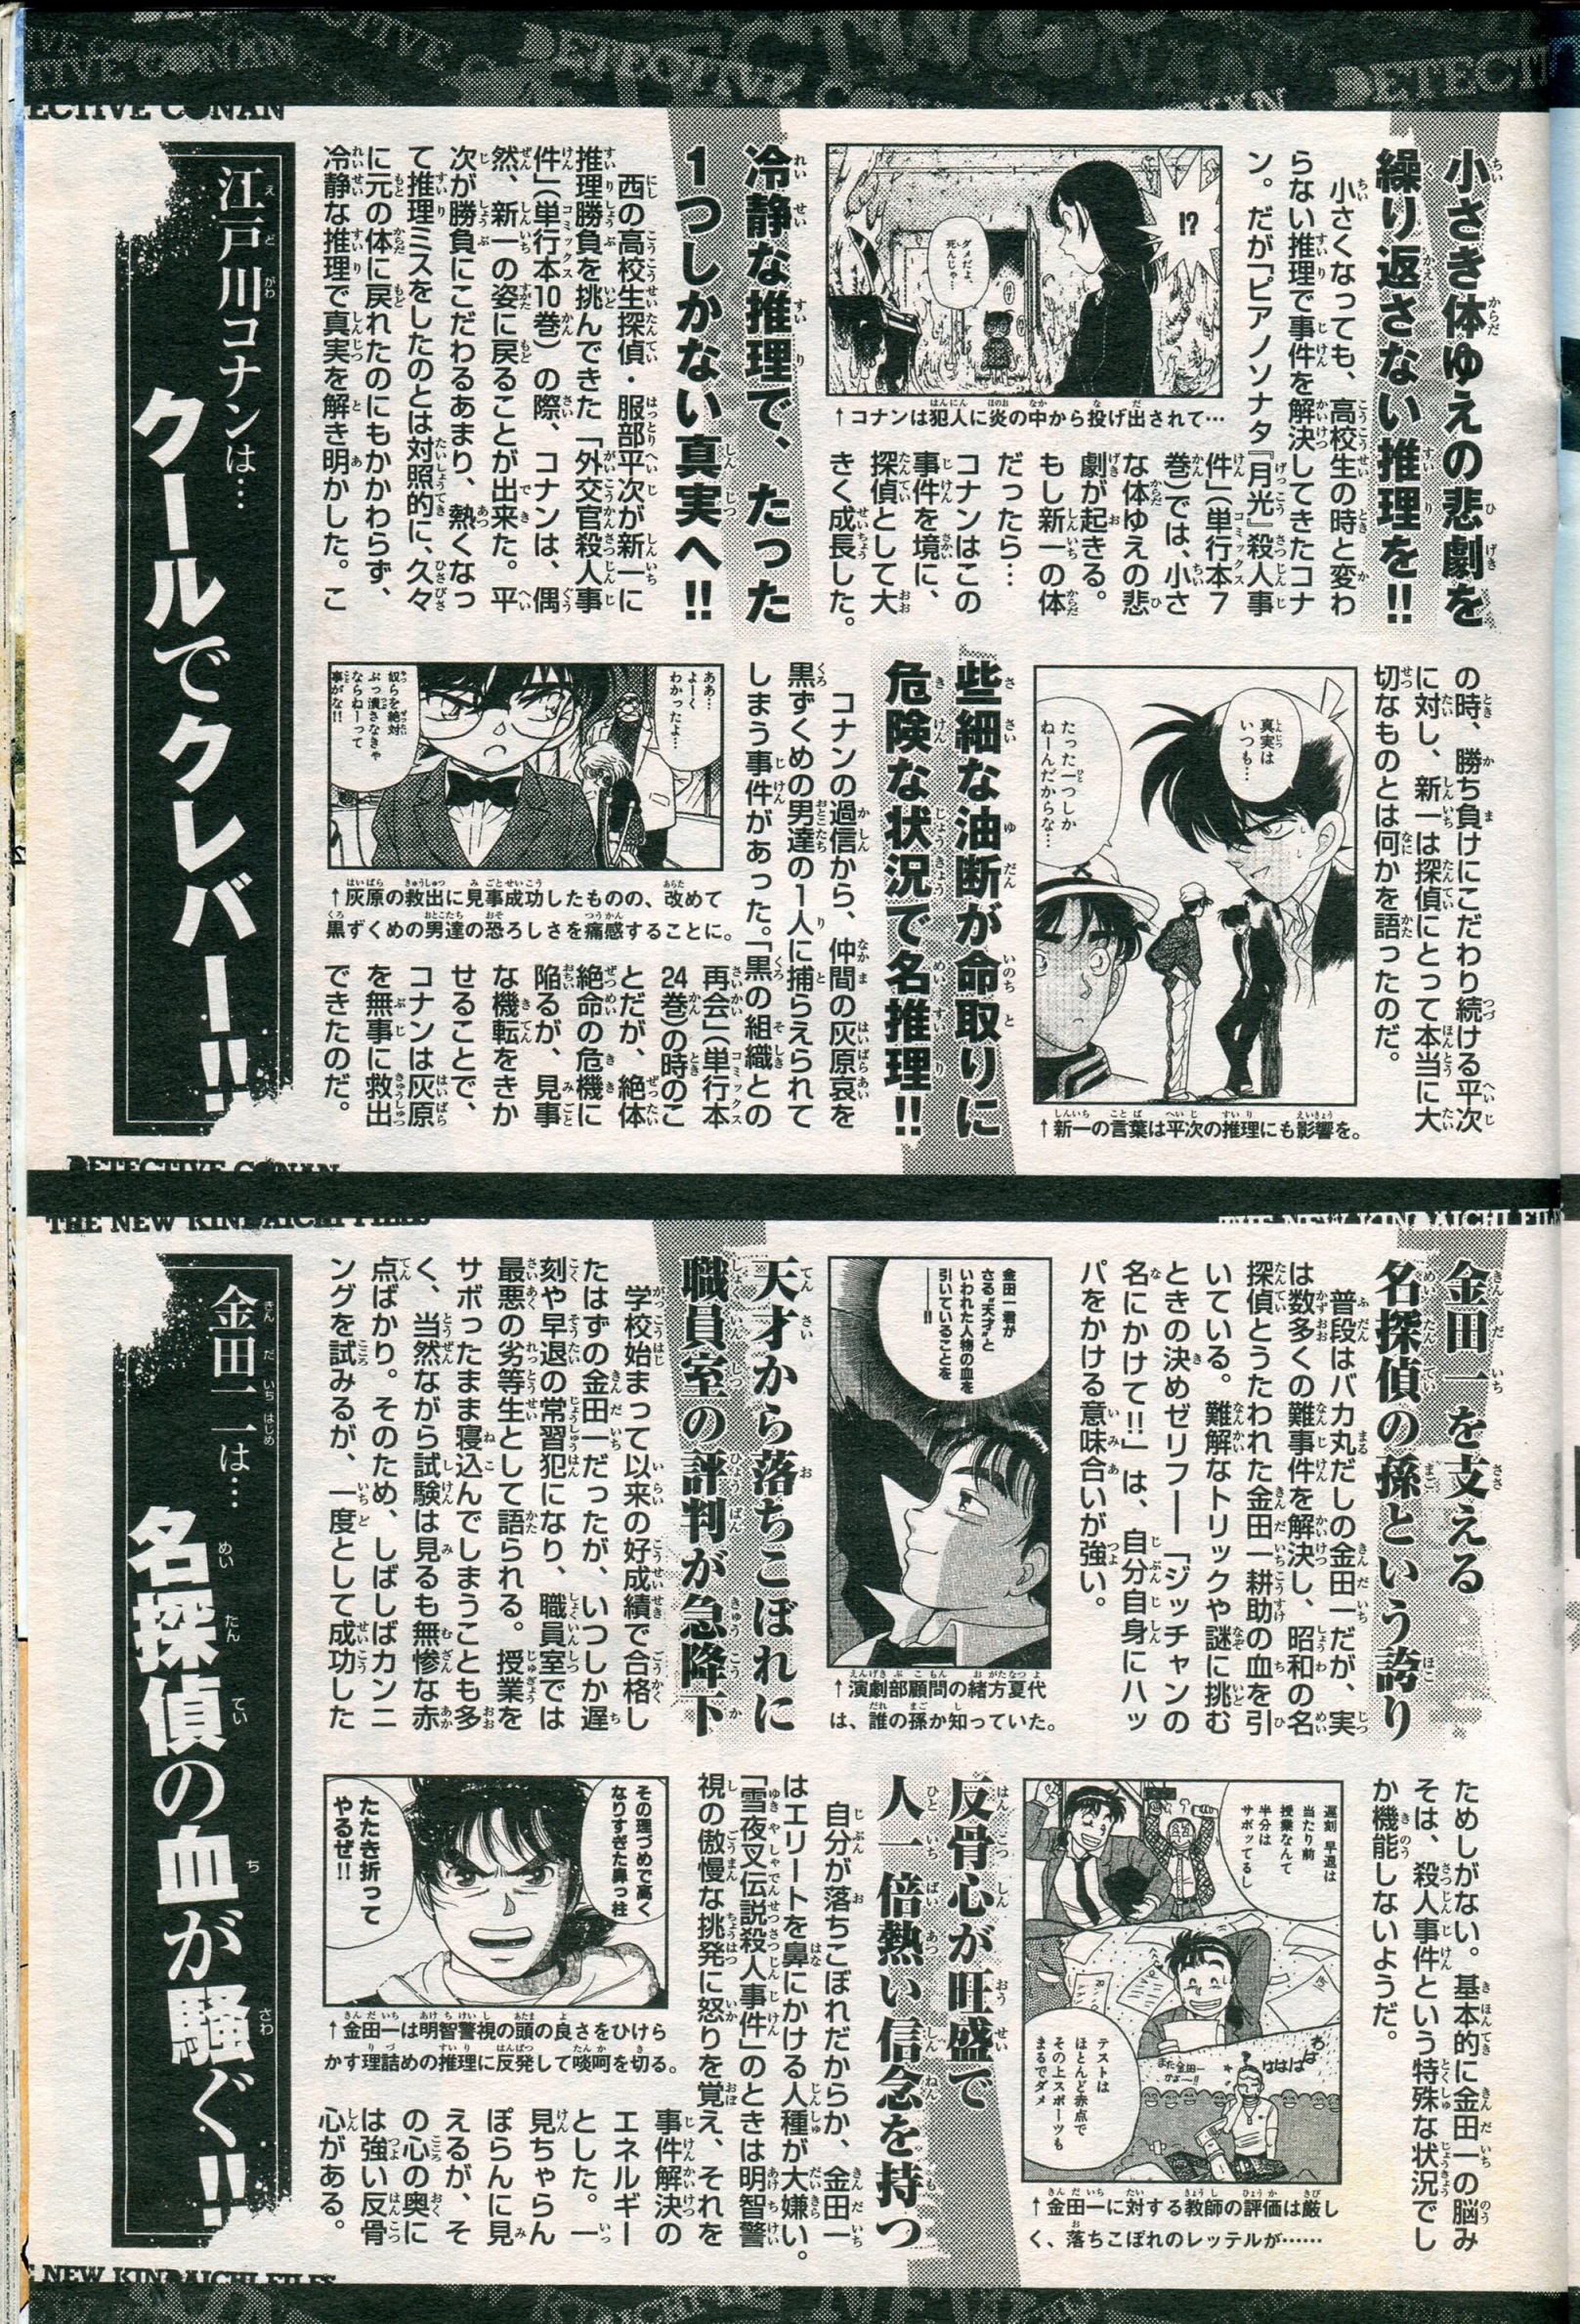 DETECTIVE CONAN
小さき体ゆえの悲劇を
繰り返さない推理を!!
小さくなっても、高校生の時と変わ
らない推理で事件を解決してきたコナ
ン。だが「ピアノソナタ『月光』殺人事
件」（単行本7
巻）では、小さ
な体ゆえの悲
劇が起きる。
もし新一の体
だったら…
コナンはこの
事件を境に、
探偵として大
きく成長した。
!?
ダメだよ、
死んじゃ…
↑コナンは犯人に炎の中から投げ出されて…
冷静な推理で、たった
1つしかない真実へ!!
西の高校生探偵・服部平次が新一に
推理勝負を挑んできた「外交官殺人事
件」（単行本10巻）の際、コナンは、偶
然、新一の姿に戻ることが出来た。平
次が勝負にこだわるあまり、熱くなっ
て推理ミスをしたのとは対照的に、久々
に元の体に戻れたのにもかかわらず、
冷静な推理で真実を解き明かした。こ
の時、勝ち負けにこだわり続ける平次
に対し、新一は探偵にとって本当に大
切なものとは何かを語ったのだ。
真実は
いつも…
たった一つしか
ねーんだからな…
↑新一の言葉は平次の推理にも影響を。
些細な油断が命取りに
危険な状況で名推理!!
コナンの過信から、仲間の灰原哀を
黒ずくめの男達の1人に捕らえられて
しまう事件があった。「黒の組織との
再会」（単行本
24巻）の時のこ
とだが、絶体
絶命の危機に
陥るが、見事
な機転をきか
せることで、
コナンは灰原
を無事に救出
できたのだ。
ああ…
よーく
わかったよ…
奴らを絶対
ぶっ潰さなきゃ
ならねーって
事がな!!
↑灰原の救出に見事成功したものの、改めて
黒ずくめの男達の恐ろしさを痛感することに。
江戸川コナンは…
クールでクレバー!!
DETECTIVE CONAN
THE NEW KINDAICHI FILES
THE NEW KINDAICHI FILES
金田一を支える
名探偵の孫という誇り
普段はバカ丸だしの金田一だが、実
は数多くの難事件を解決し、昭和の名
探偵とうたわれた金田一耕助の血を引
いている。難解なトリックや謎に挑む
ときの決めゼリフ──「ジッチャンの
名にかけて!!」は、自分自身にハッ
パをかける意味合いが強い。
金田一君が
さる“天才”と
いわれた人物の血を
引いていることを
──!!
↑演劇部顧問の緒方夏代
は、誰の孫か知っていた。
天才から落ちこぼれに
職員室の評判が急降下
学校始まって以来の好成績で合格し
たはずの金田一だったが、いつしか遅
刻や早退の常習犯になり、職員室では
最悪の劣等生として語られる。授業を
サボったまま寝込んでしまうことも多
く、当然ながら試験は見るも無惨な赤
点ばかり。そのため、しばしばカンニ
ングを試みるが、一度として成功した
ためしがない。基本的に金田一の脳み
そは、殺人事件という特殊な状況でし
か機能しないようだ。
遅刻 早退は
当たり前
授業なんて
半分は
サボッてるし
テストは
ほとんど赤点で
その上スポーツも
まるでダメ
わ
はははは
また金田一
かよー!!
↑金田一に対する教師の評価は厳し
く、落ちこぼれのレッテルが……
反骨心が旺盛で
人一倍熱い信念を持つ
自分が落ちこぼれだからか、金田一
はエリートを鼻にかける人種が大嫌い。
「雪夜叉伝説殺人事件」のときは明智警
視の傲慢な挑発に怒りを覚え、それを
事件解決の
エネルギー
とした。一
見ちゃらん
ぽらんに見
えるが、そ
の心の奥に
は強い反骨
心がある。
その理づめで高く
なりすぎた鼻っ柱
たたき折って
やるぜ!!
↑金田一は明智警視の頭の良さをひけら
かす理詰めの推理に反発して啖呵を切る。
金田一一は…
名探偵の血が騒ぐ!!
THE NEW KINDAICHI FILES